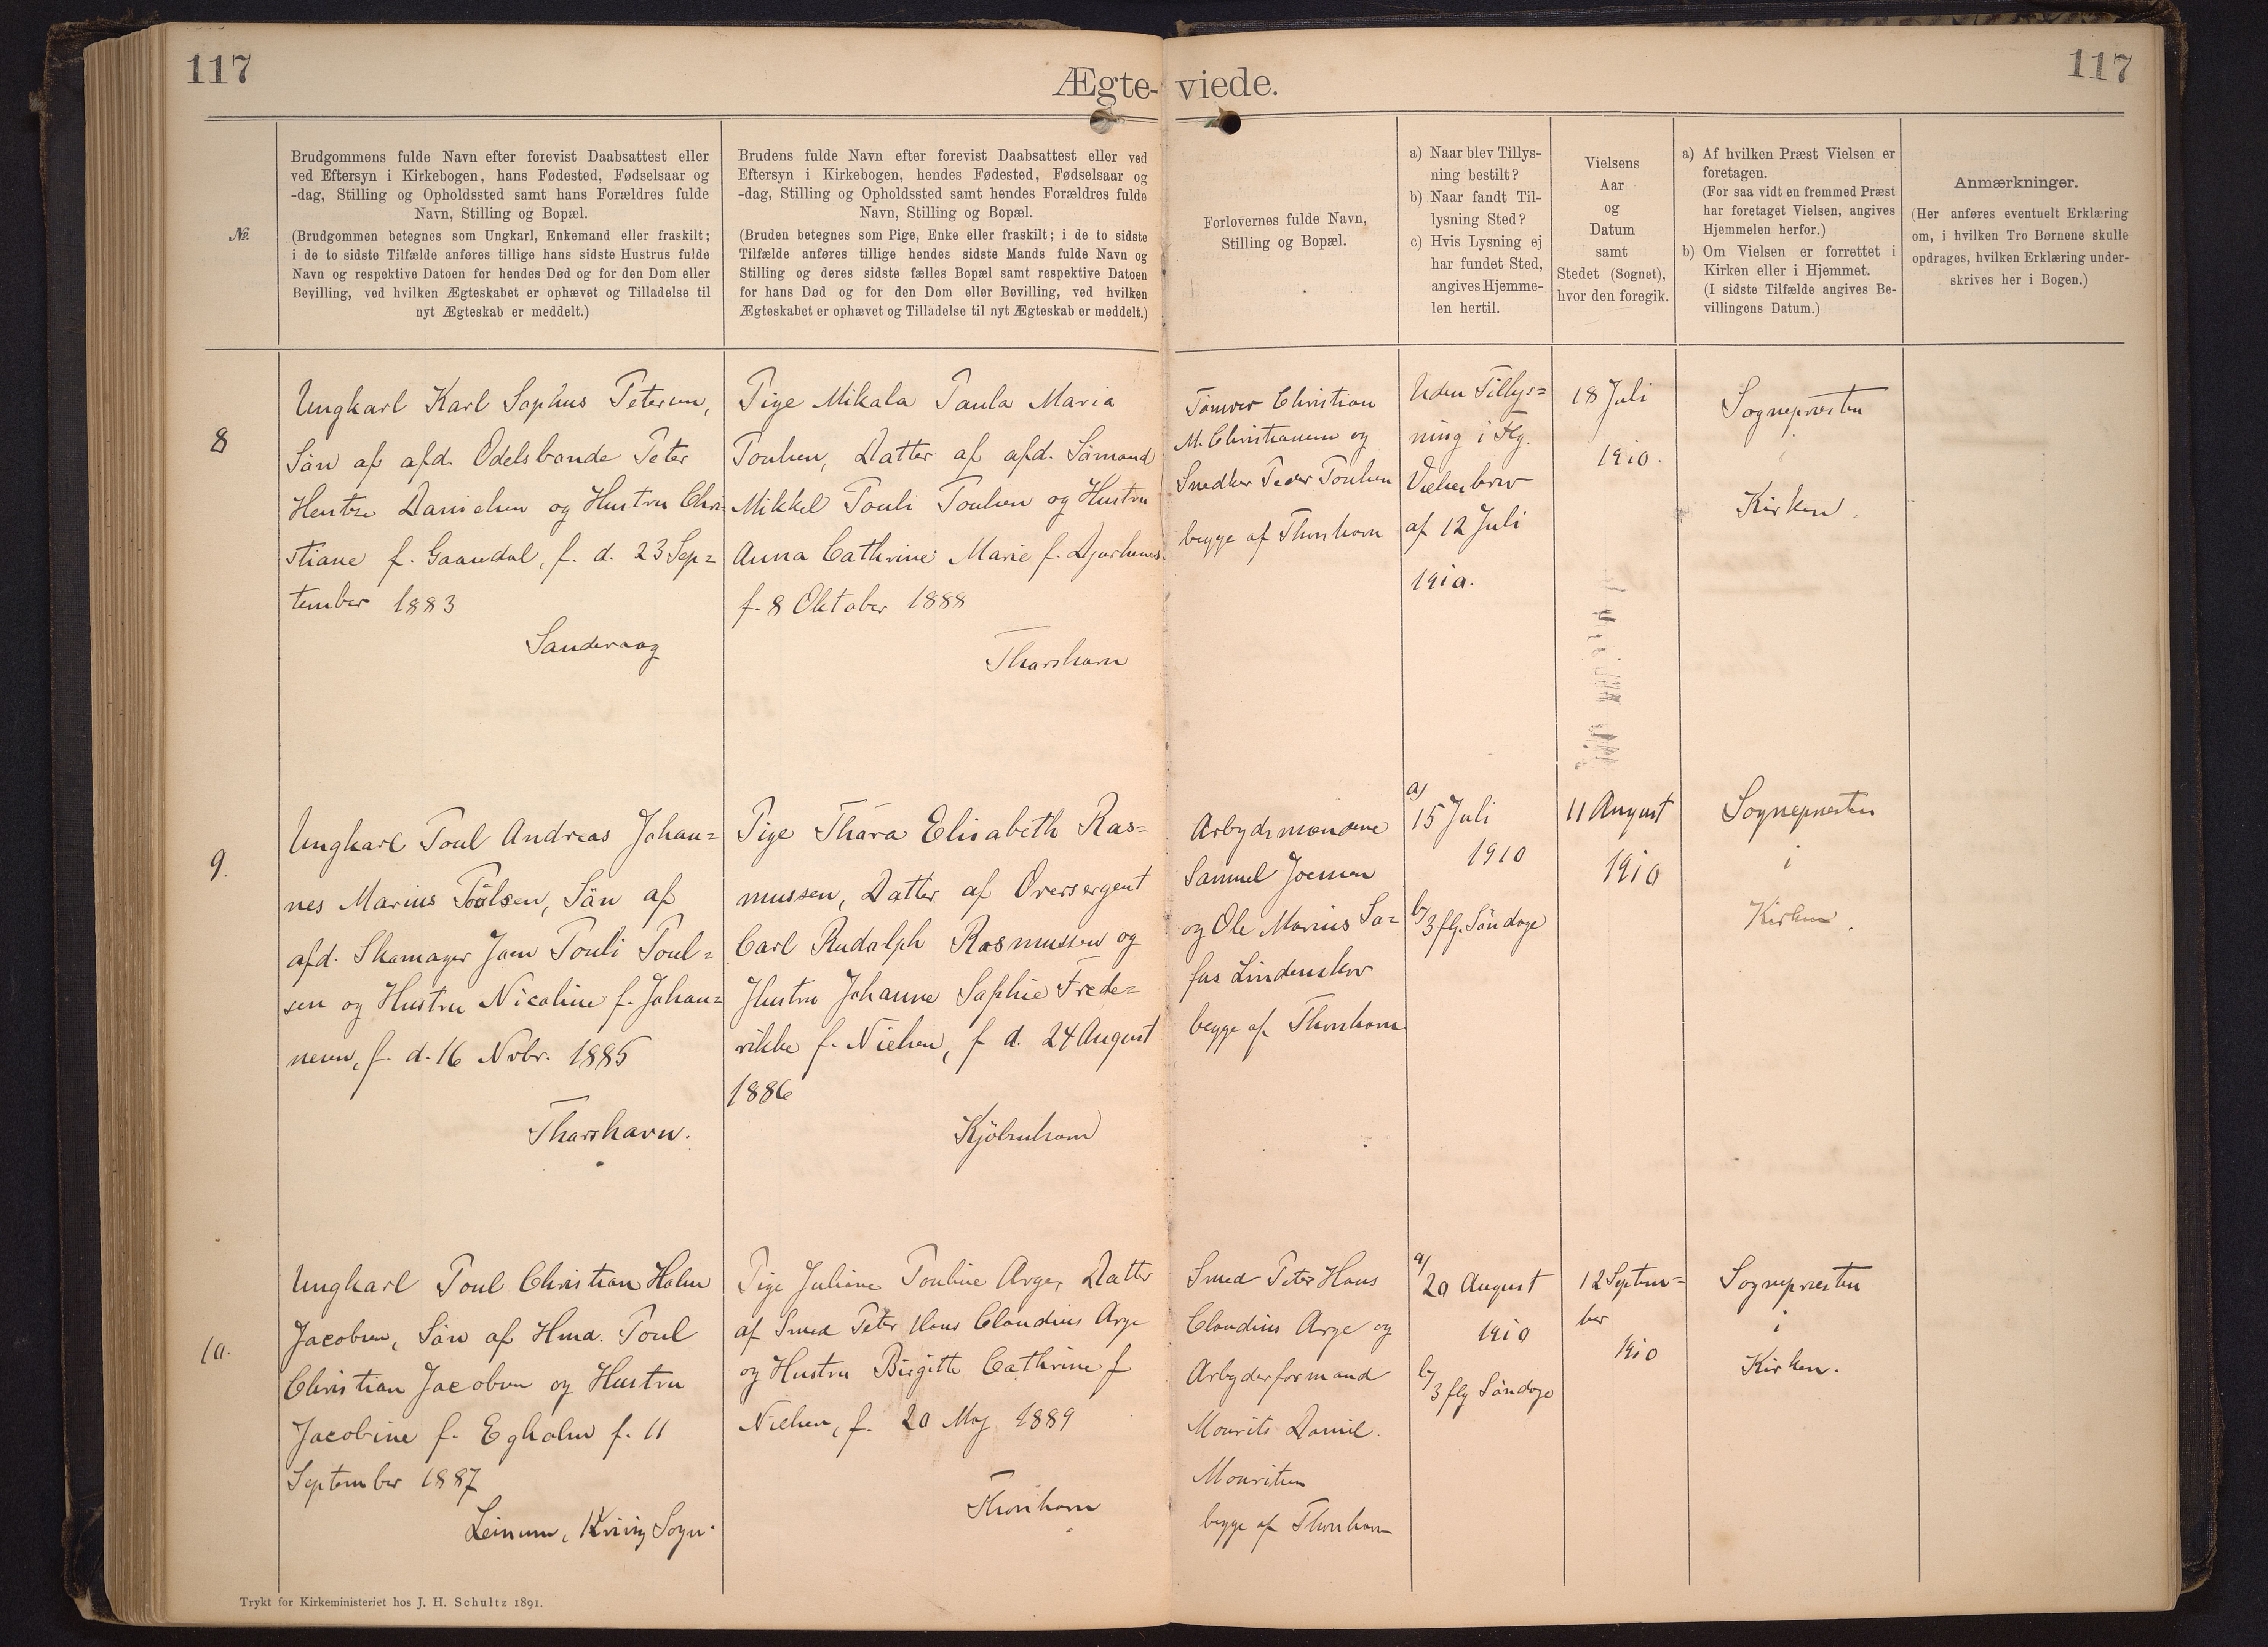 117
Ægte-viede.
117
№.
Brudgommens fulde Navn efter forevist Daabsattest eller
ved Eftersyn i Kirkebogen, hans Fødested, Fødselsaar og
-dag, Stilling og Opholdssted samt hans Forældres fulde
Navn, Stilling og Bopæl.
(Brudgommen betegnes som Ungkarl, Enkemand eller fraskilt;
i de to sidste Tilfælde anføres tillige hans sidste Hustrus fulde
Navn og respektive Datoen for hendes Død og for den Dom eller
Bevilling, ved hvilken Ægteskabet er ophævet og Tilladelse til
nyt Ægteskab er meddelt.)
Brudens fulde Navn efter forevist Daabsattest eller ved
Eftersyn i Kirkebogen, hendes Fødested, Fødselsaar og
-dag, Stilling og Opholdssted samt hendes Forældres fulde
Navn, Stilling og Bopæl.
(Bruden betegnes som Pige, Enke eller fraskilt; i de to sidste
Tilfælde anføres tillige hendes sidste Mands fulde Navn og
Stilling og deres sidste fælles Bopæl samt respektive Datoen
for hans Død og for den Dom eller Bevilling, ved hvilken
Ægteskabet er ophævet og Tilladelse til nyt Ægteskab er meddelt.)
Forlovernes fulde Navn,
Stilling og Bopæl.
a) Naar blev Tillys-
ning bestilt?
b) Naar fandt Til-
lysning Sted?
c) Hvis Lysning ej
har fundet Sted,
angives Hjemme-
len hertil.
Vielsens
Aar
og
Datum
samt
Stedet (Sognet),
hvor den foregik.
a) Af hvilken Præst Vielsen er
foretagen.
(For saa vidt en fremmed Præst
har foretaget Vielsen, angives
Hjemmelen herfor.)
b) Om Vielsen er forrettet i
Kirken eller i Hjemmet.
(I sidste Tilfælde angives Be-
villingens Datum.)
Anmærkninger.
(Her anføres eventuelt Erklæring
om, i hvilken Tro Børnene skulle
opdrages, hvilken Erklæring under-
skrives her i Bogen.)
8
Ungkarl Karl Sophus Petersen,
Sön af afd. Odelsbonde Peter
Hentze Danielsen og Hustru Chri-
stiane f. Gaardal, f. d. 23 Sep=
tember 1883
Sandevaag
Pige Mikala Paula Maria
Poulsen, Datter af afd. Sömand
Mikkel Pouli Poulsen og Hustru
Anna Cathrine Marie f. Djurhuus
f. 8 Oktober 1888
Thorshavn
Tömrer Christian
M. Christiansen og
Snedker Peder Poulsen
begge af Thorshavn
Uden Tillys=
ning i Flg.
Vielsesbrev
af 12 Juli
1910.
18 Juli
1910.
Sognepræsten
i
Kirken.
9.
Ungkarl Poul Andreas Johan=
nes Marius Poulsen, Sön af
afd. Skomager Joen Pouli Poul=
sen og Hustru Nicoline f. Johan=
nesen, f. d. 16 Nvbr. 1885
Thorshavn.
Pige Thora Elisabeth Ras=
mussen, Datter af Oversergent
Carl Rudolph Rasmussen og
Hustru Johanne Sophie Frede=
rikke f. Nielsen, f d. 24 August
1886
Kjöbenhavn
Arbejdsmændene
Samuel Joensen
og Ole Marius Jo=
fus Lindenskov
begge af Thorshavn
a)
15 Juli
1910
b) 3 flg. Söndage
11 August
1910
Sognepræsten
i
Kirken.
10.
Ungkarl Poul Christian Holm
Jacobsen, Sön af Hmd. Poul
Christian Jacobsen og Hustru
Jacobine f. Egholm f. 11
September 1887
Leinum, Kvivig Sogn.
Pige Juliane Pouline Arge, Datter
af Smed Peter Hans Claudius Arge
og Hustru Birgitte Cathrine f
Nielsen, f. 20 Maj 1889
Thorshavn
Smed Peter Hans
Claudius Arge og
Arbejderformand
Mourits Daniel
Mouritsen
begge af Thorshavn
a)
20 August
1910
b) 3 flg Söndage
12 Septem=
ber
1910
Sognepræsten
i
Kirken.
Trykt for Kirkeministeriet hos J. H. Schultz 1891.